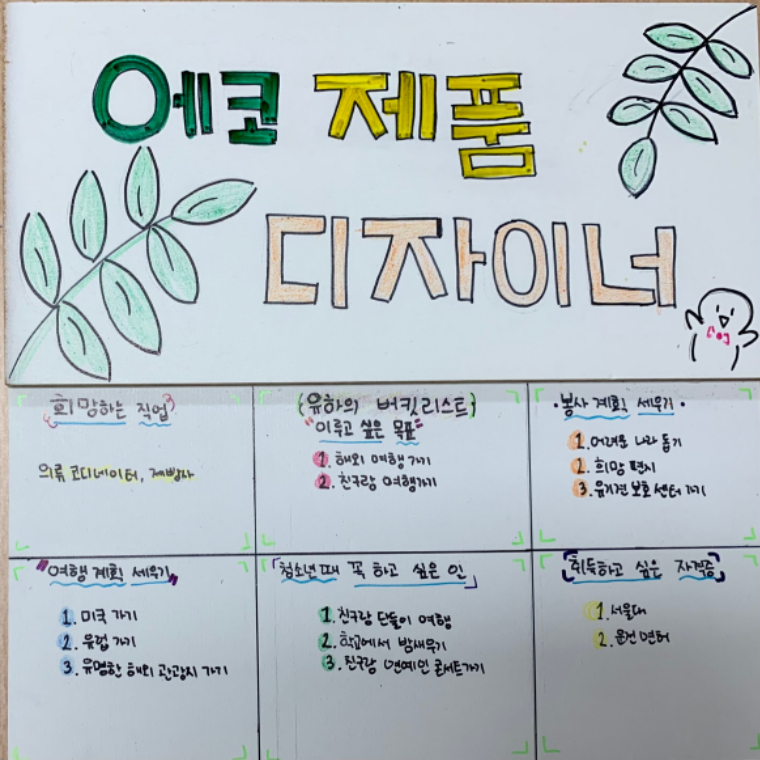 에코 제품
디자이너
희망하는 직업
의류 코디네이터, 제빵사
{유하의 버킷리스트}
"이루고 싶은 목표"
1. 해외 여행 가기
2. 친구랑 여행가기
·봉사 계획 세우기·
1. 어려운 나라 돕기
2. 희망 편지
3. 유기견 보호 센터 가기
"여행 계획 세우기"
1. 미국 가기
2. 유럽 가기
3. 유명한 해외 관광지 가기
「청소년때 꼭 하고 싶은 인」
1. 친구랑 단둘이 여행
2. 학교에서 밤새우기
3. 친구랑 연예인 콘서트가기
[취득하고 싶은 자격증]
1. 서울대
2. 운전 면허